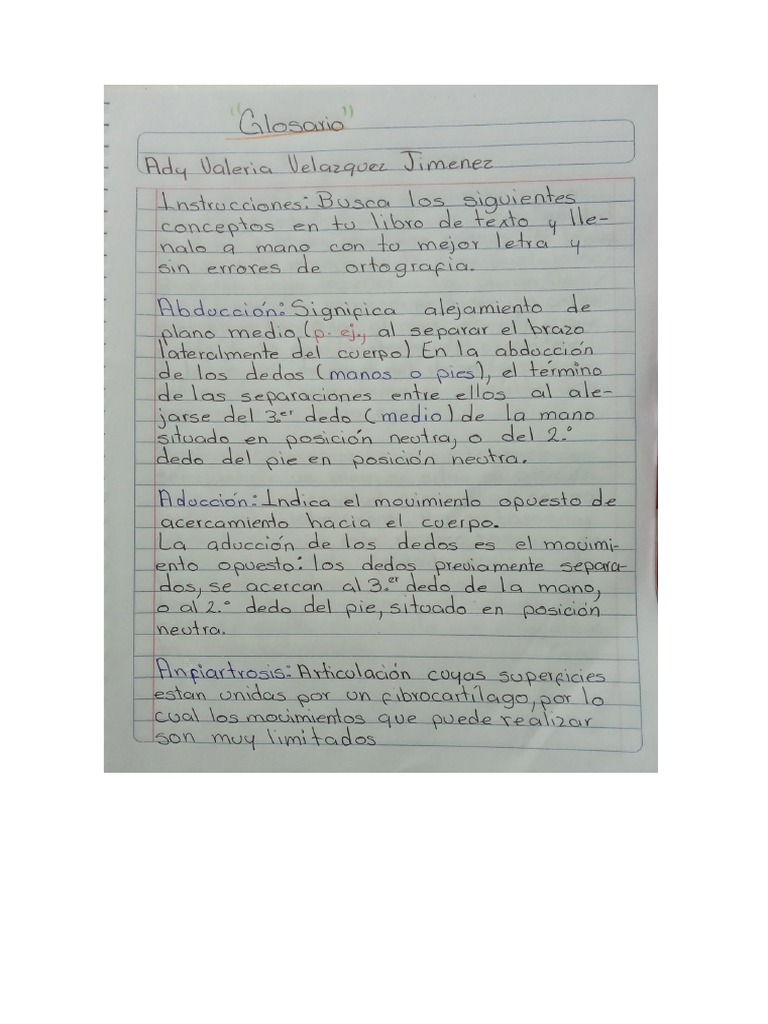 "Glosario"
Ady Valeria Velazquez Jimenez
Instrucciones: Busca los siguientes
conceptos en tu libro de texto y lle-
nalo a mano con tu mejor letra y
sin errores de ortografia.
Abducción: Significa alejamiento de
plano medio (p. ej., al separar el brazo
lateralmente del cuerpo) En la abducción
de los dedos (manos o pies), el término
de las separaciones entre ellos al ale-
jarse del 3.er dedo (medio) de la mano
situado en posición neutra, o del 2.°
dedo del pie en posición neutra.
Aducción: Indica el movimiento opuesto de
acercamiento hacia el cuerpo.
La aducción de los dedos es el movimi-
ento opuesto: los dedos previamente separa-
dos, se acercan al 3.er dedo de la mano,
o al 2.° dedo del pie, situado en posición
neutra.
Anfiartrosis: Articulación cuyas superficies
estan unidas por un fibrocartílago, por lo
cual los movimientos que puede realizar
son muy limitados